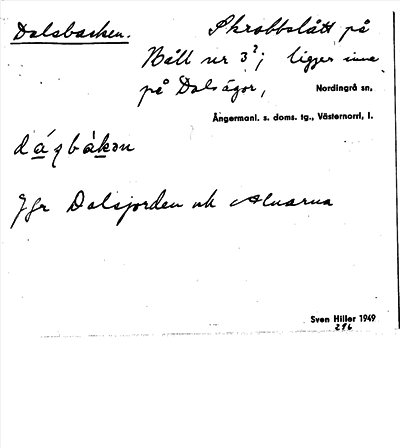 Dalsbacken.
Skrabbslått på
Båll nr 3²; ligger inne
på Dals ägor,
Nordingrå sn,
Ångermanl. s. doms. tg., Västernorrl, l.
Jfr Dalsjorden ok Alnarna
Sven Hiller 1949
296